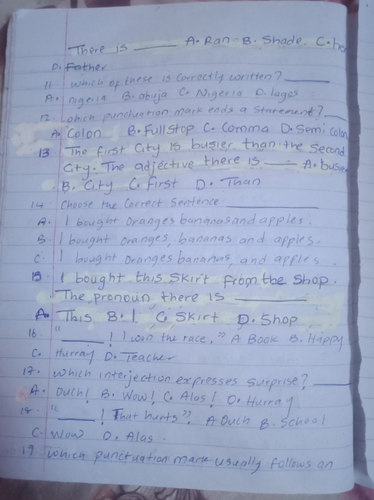 There is ____ A. Ran B. Shade C. her
D. Father
11 which of these is correctly written? ____
A. nigeria B. abuja C. Nigeria D. lagos
12. which punctuation mark ends a statement? ____
A. Colon B. Fullstop C. Comma D. Semi colon
13 The first City is busier than the second
City. The adjective there is ____ A. busier
B. City C. first D. Than
14 Choose the correct Sentence ____
A. I bought oranges bananas and apples.
B. I bought oranges, bananas and apples.
C. I bought oranges bananas, and apples
15 I bought this Skirt from the Shop.
The pronoun there is ____
A. This B. I C. Skirt D. Shop
16. "____! I won the race." A Book B. Happy
C. Hurray D. Teacher
17. which interjection expresses surprise? ____
A. Ouch! B. Wow! C. Alas! D. Hurray
18. "____! That hurts". A Ouch B. School
C. Wow D. Alas.
19 which punctuation mark usually follows an